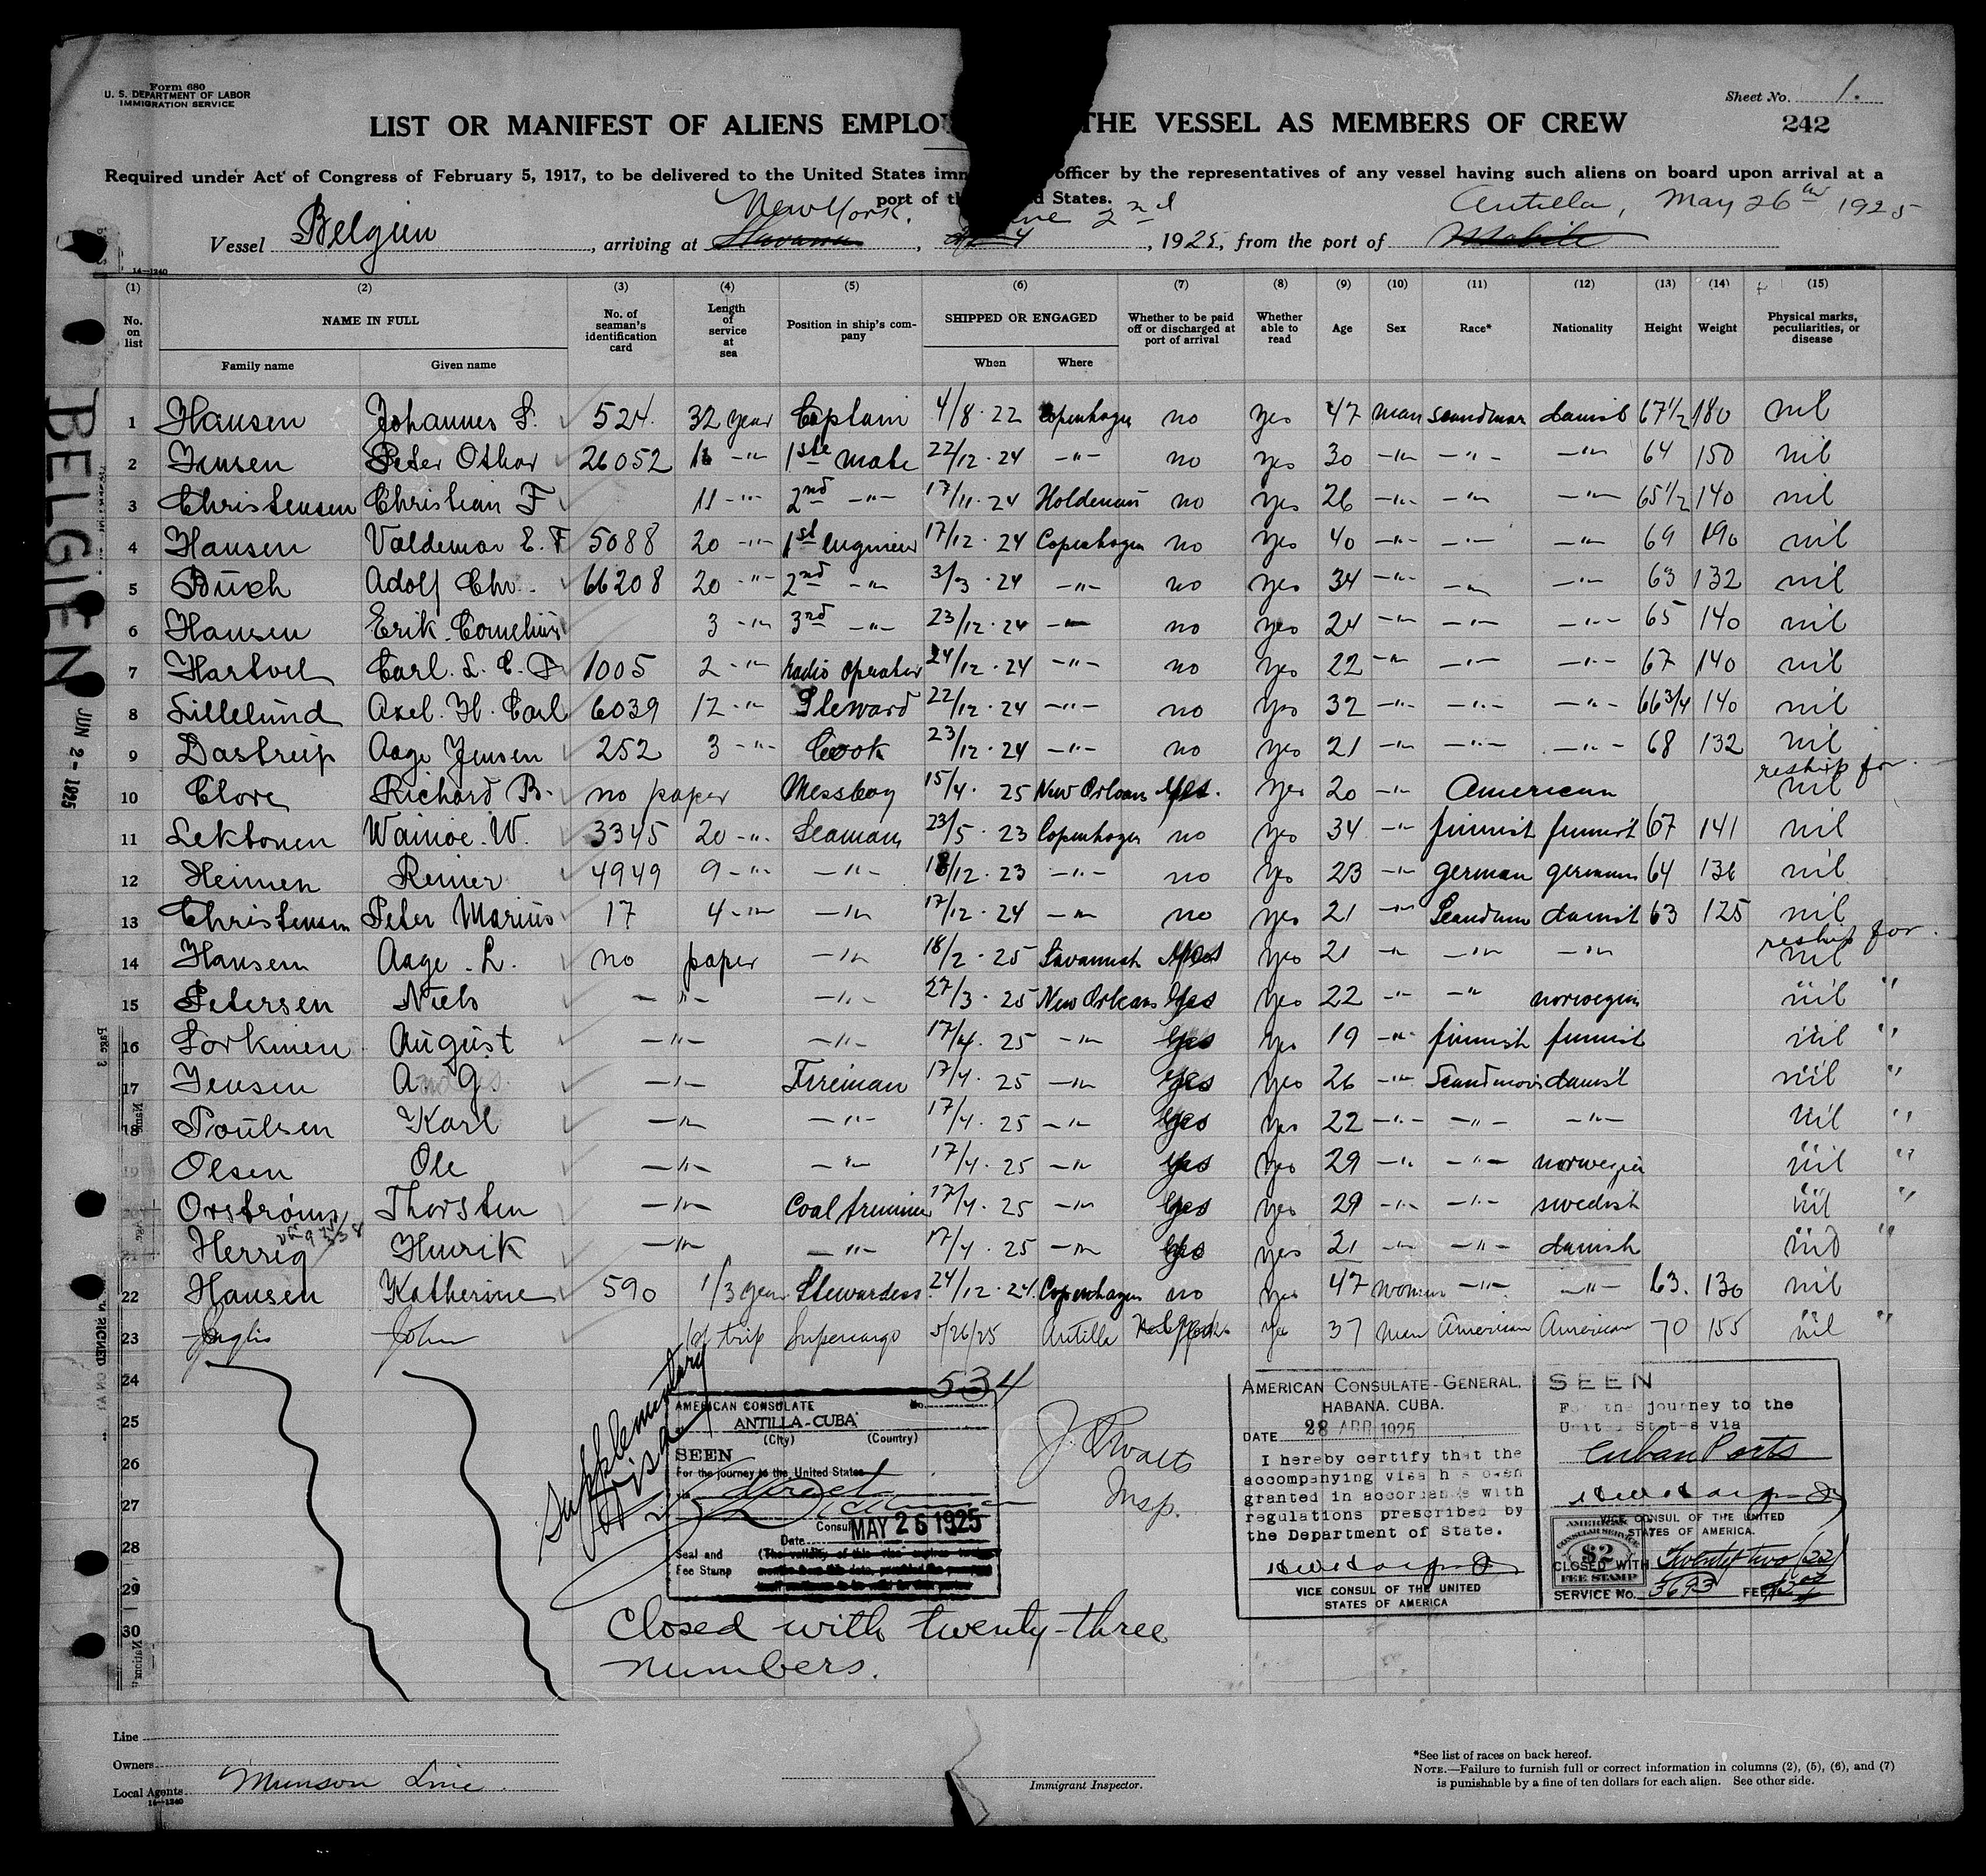 Form 680
U. S. DEPARTMENT OF LABOR
IMMIGRATION SERVICE
Sheet No. 1.
LIST OR MANIFEST OF ALIENS EMPLO THE VESSEL AS MEMBERS OF CREW
242
Required under Act of Congress of February 5, 1917, to be delivered to the United States imm officer by the representatives of any vessel having such aliens on board upon arrival at a
port of th d States.
New York, 2nd Antilla, May 26th 1925
Vessel Belgien, arriving at Havana, 1925, from the port of Mobile
14-1240
(1) (2) (3) (4) (5) (6) (7) (8) (9) (10) (11) (12) (13) (14) (15)
No. on list
NAME IN FULL
Family name
Given name
No. of seaman's identification card
Length of service at sea
Position in ship's company
SHIPPED OR ENGAGED
When
Where
Whether to be paid off or discharged at port of arrival
Whether able to read
Age
Sex
Race*
Nationality
Height
Weight
Physical marks, peculiarities, or disease
1 Hansen Johannes S. 524. 32 year Captain 4/8. 22 Copenhagen no yes 47 man scandinav danish 67 1/2 180 nil
2 Jensen Peter Othar 26052 -"- 1ste mate 22/12. 24 -"- no yes 30 -"- -"- -"- 64 150 nil
3 Christensen Christian F 11 -"- 2nd -"- 17/11. 24 no yes 26 -"- -"- -"- 65 1/2 140 nil
4 Hansen Valdemar E. F 5088 20 -"- 1st Engineer 17/12. 24 Copenhagen no yes 40 -"- -"- -"- 69 190 nil
5 Buch Adolf Chr. 66208 20 -"- 2nd -"- 3/3. 24 -"- no yes 34 -"- -"- -"- 63 132 nil
6 Hansen Erik Cornelius 3 -"- 3rd -"- 23/12. 24 -"- no yes 24 -"- -"- -"- 65 140 nil
7 Hartvel Carl. L. C. 1005 2 -"- radio oprator 24/12. 24 -"- no yes 22 -"- -"- -"- 67 140 nil
8 Lillelund Axel. H. Carl 6039 12 -"- Steward 22/12. 24 -"- no yes 32 -"- -"- -"- 66 3/4 140 nil
9 Dastrup Aage Jensen 252 3 -"- Cook 23/12. 24 -"- no yes 21 -"- -"- -"- 68 132 nil
reship for
10 Clore Richard B. no paper Messboy 15/4. 25 New Orleans yes. yes 20 -"- American nil
11 Lektonen Wainoe. W. 3345 20 -"- Seaman 23/5. 23 Copenhagen no yes 34 -"- finnish finnish 67 141 nil
12 Heinen Reiner 4949 9 -"- -"- 18/12. 23 -"- no yes 23 -"- german german 64 136 nil
13 Christensen Peter Marius 17 4 -"- -"- 17/12. 24 -"- no yes 21 -"- Scandinav danish 63 125 nil
reship for
14 Hansen Aage. L. no paper -"- 18/2. 25 Savannah yes yes 21 -"- -"- -"- nil
15 Petersen Niels -"- -"- 27/3. 25 New Orleans yes yes 22 -"- -"- norwegian nil "
16 Sorkinen August -"- -"- 17/4. 25 -"- yes yes 19 -"- finnish finnish nil "
17 Jensen -"- Fireman 17/4. 25 -"- yes yes 26 -"- Scandinavis danish nil "
18 Poulsen Karl -"- -"- 17/4. 25 -"- yes yes 22 -"- -"- -"- nil "
19 Olsen Ole -"- -"- 17/4. 25 -"- yes yes 29 -"- -"- norwegian nil "
20 Orstrøm Thorsten -"- Coal trimmer 17/4. 25 -"- yes yes 29 -"- -"- swedish nil "
21 Herrig Henrik -"- -"- 17/4. 25 -"- yes yes 21 -"- -"- danish nil "
22 Hansen Katherine 590 1/3 year Stewardess 24/12. 24. Copenhagen no yes 47 woman -"- -"- 63. 130 nil
23 Inglis John 1st trip Supercargo 5/26/25 Antilla yes 37 man American American 70 155 nil "
24
25
26
27
28
29
30
BELGIEN
JUN 2 - 1925
Supplementary Visa
534
AMERICAN CONSULATE No.
ANTILLA-CUBA
(City) (Country)
SEEN
For the journey to the United States
via direct
Consul
Date MAY 26 1925
Seal and
Fee Stamp
(The validity of this visa expires twelve
months from this date, provided the passport
itself continues to be valid for that period)
Insp.
AMERICAN CONSULATE-GENERAL,
HABANA, CUBA.
DATE 28 APR 1925
I hereby certify that the
accompanying visa has been
granted in accordance with
regulations prescribed by
the Department of State.
VICE CONSUL OF THE UNITED
STATES OF AMERICA
SEEN
For the journey to the
United States via
Cuban Ports
VICE CONSUL OF THE UNITED
STATES OF AMERICA.
AMERICAN
CONSULAR SERVICE
$2
FEE STAMP
CLOSED WITH Twenty-two (22)
SERVICE No. 3693 FEE
Closed with twenty-three
numbers.
Line
Owners
Local Agents Munson Line
14-1240
Immigrant Inspector.
*See list of races on back hereof.
NOTE.—Failure to furnish full or correct information in columns (2), (5), (6), and (7)
is punishable by a fine of ten dollars for each alien. See other side.